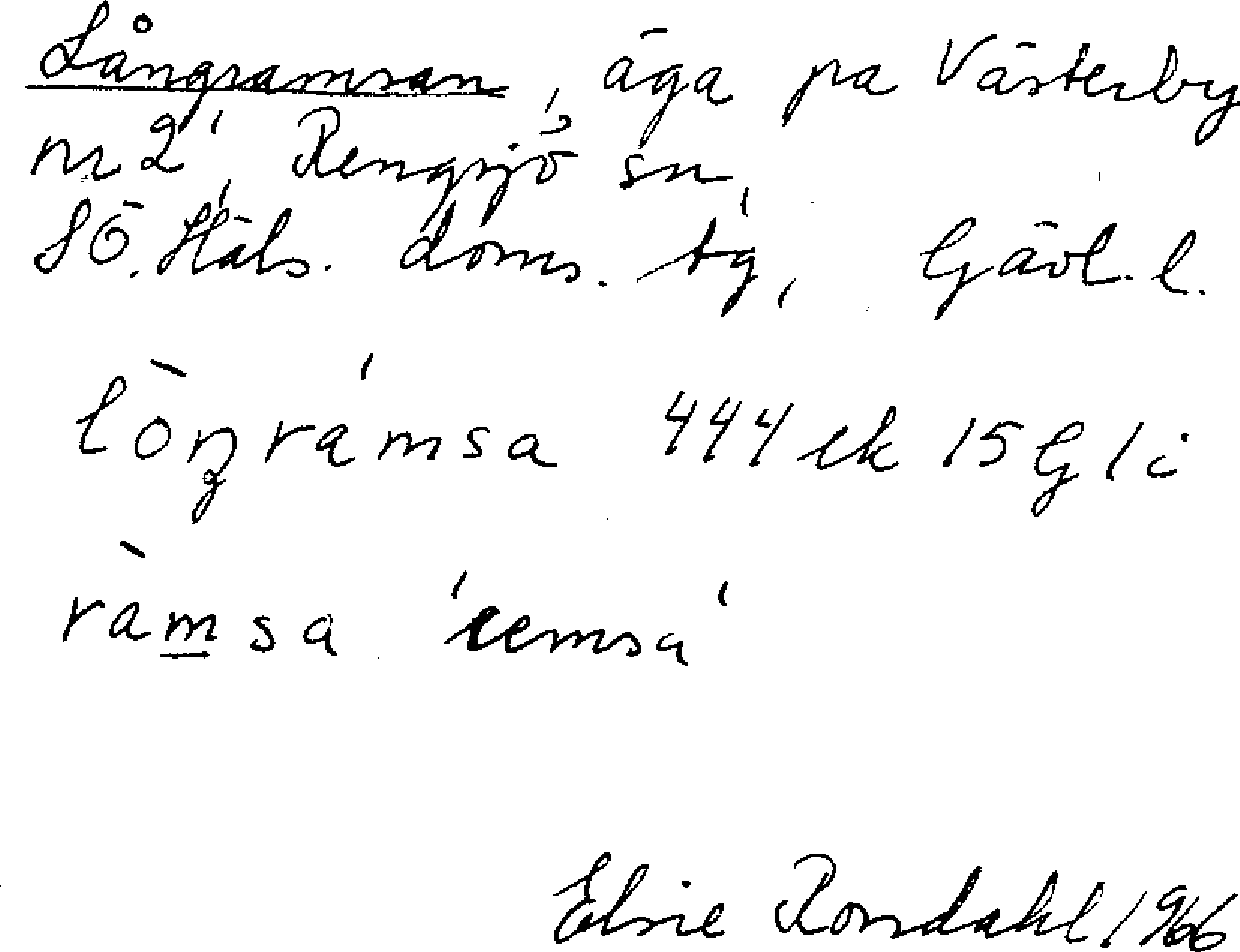 Långramsan, äga pa Västerby
nr 2, Rengsjö sn,
SÖ. Häls. doms. tg, Gävl. l.
lòŋrámsa 444 ek 15 G 1 i
ràmsa 'remsa'
Elsie Rondahl 1966